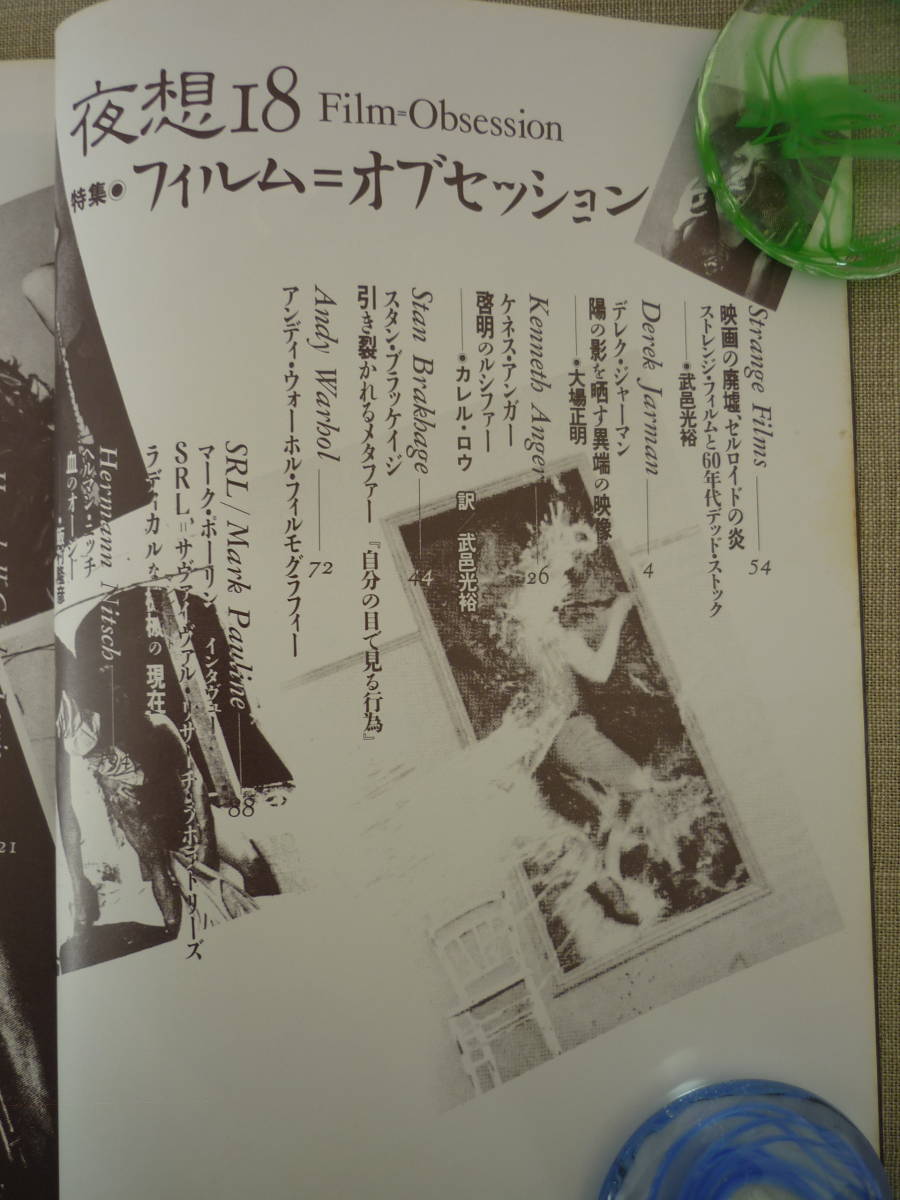 夜想18 Film=Obsession
特集◉フィルム=オブセッション
Strange Films
映画の廃墟、セルロイドの炎
ストレンジ・フィルムと60年代デッド・ストック
●武邑光裕
54
Derek Jarman
デレク・ジャーマン
陽の影を晒す異端の映像
●大場正明
4
Kenneth Anger
ケネス・アンガー
啓明のルシファー
●カレル・ロウ 訳/武邑光裕
26
Stan Brakhage
スタン・ブラッケイジ
引き裂かれるメタファー『自分の目で見る行為』
44
Andy Warhol
アンディ・ウォーホル・フィルモグラフィー
72
SRL/Mark Pauline
マーク・ポーリン インタヴュー
SRL=サヴァイヴァル・リサーチ・ラボラトリーズ
ラディカルな の現在
88
Hermann Nitsch
ヘルマン・ニッチ
血のオージー
21